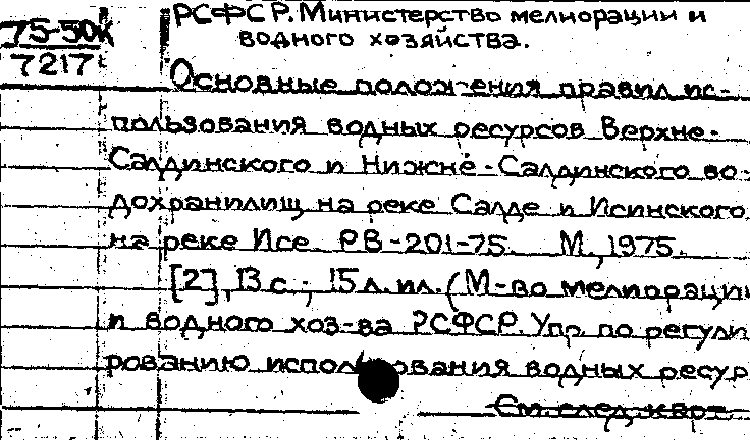 75-50к
7217
РСФСР. Министерство мелиорации и
водного хозяйства.
Основные положения правил ис-
пользования водных ресурсов Верхне-
Салдинского и Нижне-Салдинского во-
дохранилищ на реке Салде и Исинского
на реке Исе РВ-201-75. М., 1975.
[2], 13 с.; 15 л. ил. (М-во мелиорации
и водного хоз-ва РСФСР. Упр. по регули
рованию использования водных ресур
См. след. карт.